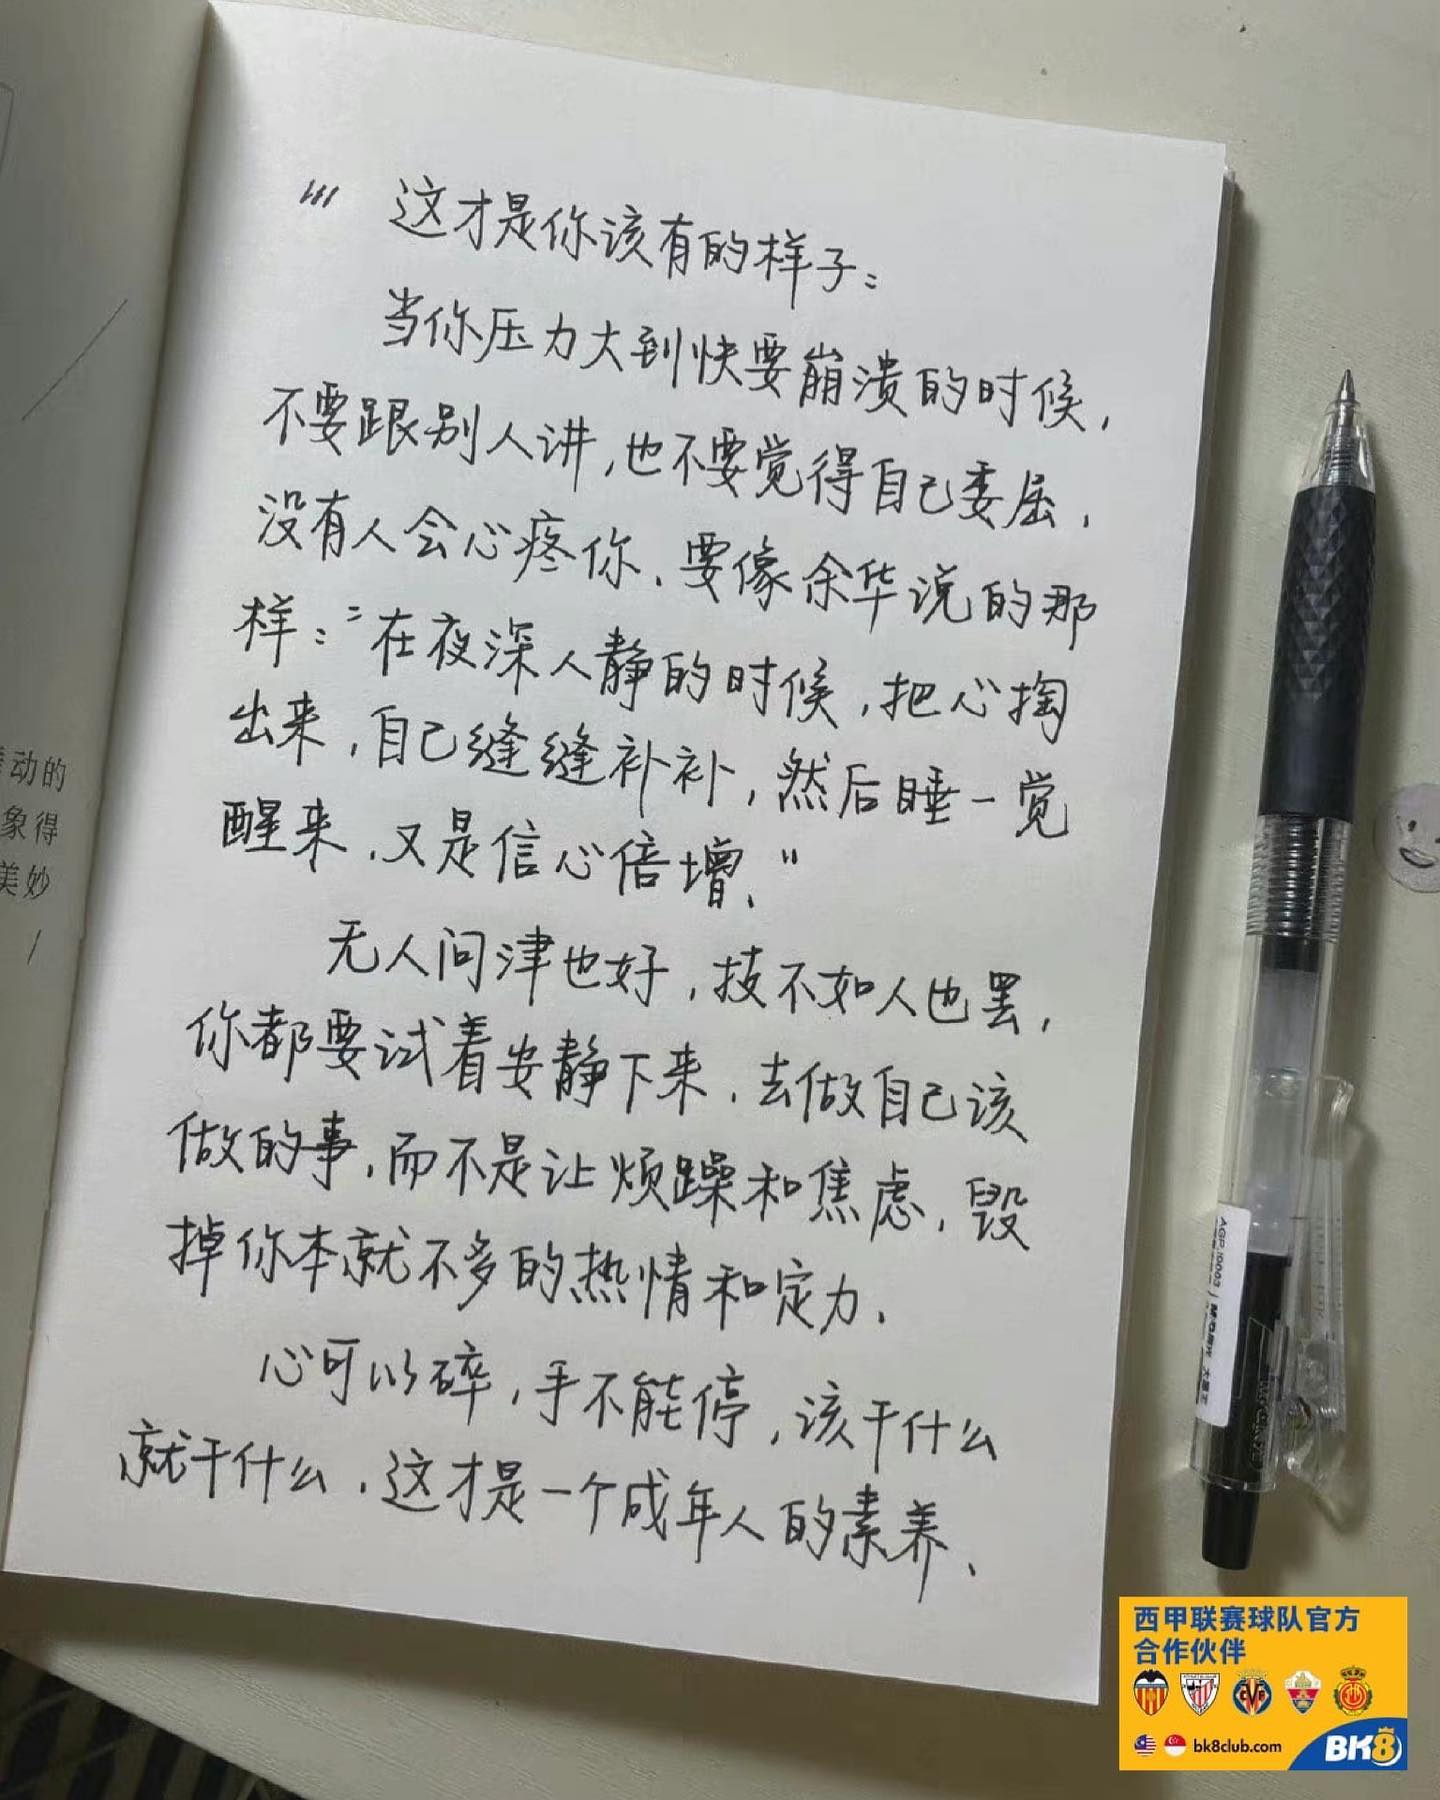 这才是你该有的样子:
当你压力大到快要崩溃的时候,
不要跟别人讲,也不要觉得自己委屈,
没有人会心疼你、要像余华说的那
样:“在夜深人静的时候,把心掏
出来,自己缝缝补补,然后睡一觉
醒来,又是信心倍增、”
无人问津也好,技不如人也罢,
你都要试着安静下来、去做自己该
做的事,而不是让烦躁和焦虑,毁
掉你本就不多的热情和定力、
心可以碎,手不能停,该干什么
就干什么、这才是一个成年人的素养、
动的
象得
美妙
AGPJ0003
西甲联赛球队官方
合作伙伴
bk8club.com
BK8